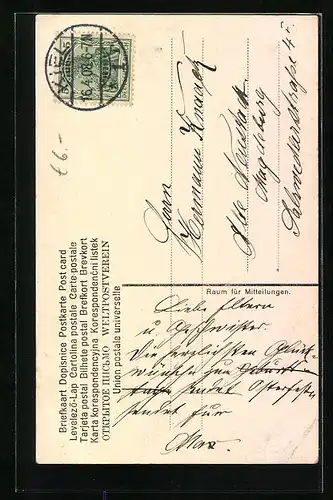 16.4.08. 6-7N
€6.-
Briefkaart Dopisnice Postkarte Post card
Levelező-Lap Cartolina postale Carte postale
Tarjeta postal Bilhete postal Brefkort Brevkort
Karta korespondencyjna Korespondenční listek
ОТКРЫТОЕ ПИСЬМО WELTPOSTVEREIN
Union postale universelle
Herrn
Hermann Knaack
Alte Neustadt
Magdeburg
Raum für Mitteilungen.
Liebe Eltern
u Geschwister.
Die herzlichsten Glück-
wünsche zum
sendet Osterfeste
sendet